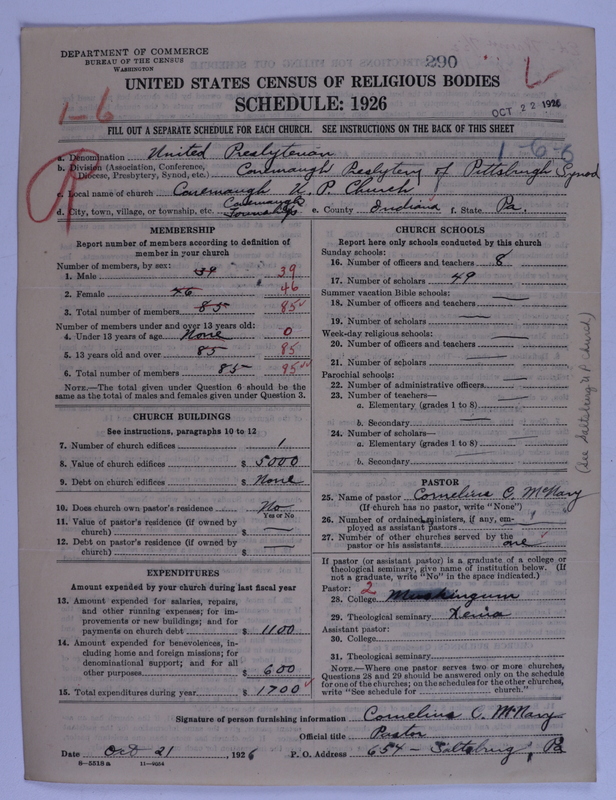 DEPARTMENT OF COMMERCE
BUREAU OF THE CENSUS
WASHINGTON
290
UNITED STATES CENSUS OF RELIGIOUS BODIES
SCHEDULE: 1926
1-6
OCT 22 1926
FILL OUT A SEPARATE SCHEDULE FOR EACH CHURCH. SEE INSTRUCTIONS ON THE BACK OF THIS SHEET
1-6-6
a. Denomination United Presbyterian
b. Division (Association, Conference, Diocese, Presbytery, Synod, etc.) Conemaugh Presbytery of Pittsburgh Synod
c. Local name of church Conemaugh U. P. Church
d. City, town, village, or township, etc. Conemaugh Township e. County Indiana f. State Pa.
MEMBERSHIP
Report number of members according to definition of member in your church
Number of members, by sex:
1. Male 39 39
2. Female 46 46
3. Total number of members 85 85
Number of members under and over 13 years old:
4. Under 13 years of age None 0
5. 13 years old and over 85 85
6. Total number of members 85 85
NOTE.—The total given under Question 6 should be the same as the total of males and females given under Question 3.
CHURCH BUILDINGS
See instructions, paragraphs 10 to 12
7. Number of church edifices 1
8. Value of church edifices $ 5000
9. Debt on church edifices $ None
10. Does church own pastor's residence No
Yes or No
11. Value of pastor's residence (if owned by church) $ —
12. Debt on pastor's residence (if owned by church) $ —
EXPENDITURES
Amount expended by your church during last fiscal year
13. Amount expended for salaries, repairs, and other running expenses; for improvements or new buildings; and for payments on church debt $ 1100
14. Amount expended for benevolences, including home and foreign missions; for denominational support; and for all other purposes $ 600
15. Total expenditures during year $ 1700
CHURCH SCHOOLS
Report here only schools conducted by this church
Sunday schools:
16. Number of officers and teachers 8
17. Number of scholars 49
Summer vacation Bible schools:
18. Number of officers and teachers —
19. Number of scholars —
Week-day religious schools:
20. Number of officers and teachers —
21. Number of scholars —
Parochial schools:
22. Number of administrative officers —
23. Number of teachers—
a. Elementary (grades 1 to 8) —
b. Secondary —
24. Number of scholars—
a. Elementary (grades 1 to 8) —
b. Secondary —
(See Saltsburg U P church)
PASTOR
25. Name of pastor Cornelius O. McNary
(If church has no pastor, write "None")
26. Number of ordained ministers, if any, employed as assistant pastors
27. Number of other churches served by the pastor or his assistants one
If pastor (or assistant pastor) is a graduate of a college or theological seminary, give name of institution below. (If not a graduate, write "No" in the space indicated.)
Pastor: 2
28. College Muskingum
29. Theological seminary Xenia
Assistant pastor:
30. College
31. Theological seminary
NOTE.—Where one pastor serves two or more churches, Questions 28 and 29 should be answered only on the schedule for one of the churches; on the schedules for the other churches, write "See schedule for church."
Signature of person furnishing information Cornelius O. McNary
Official title Pastor
Date Oct 21, 1926 P. O. Address 654 - Saltsburg, Pa
8—5518 a 11—9054